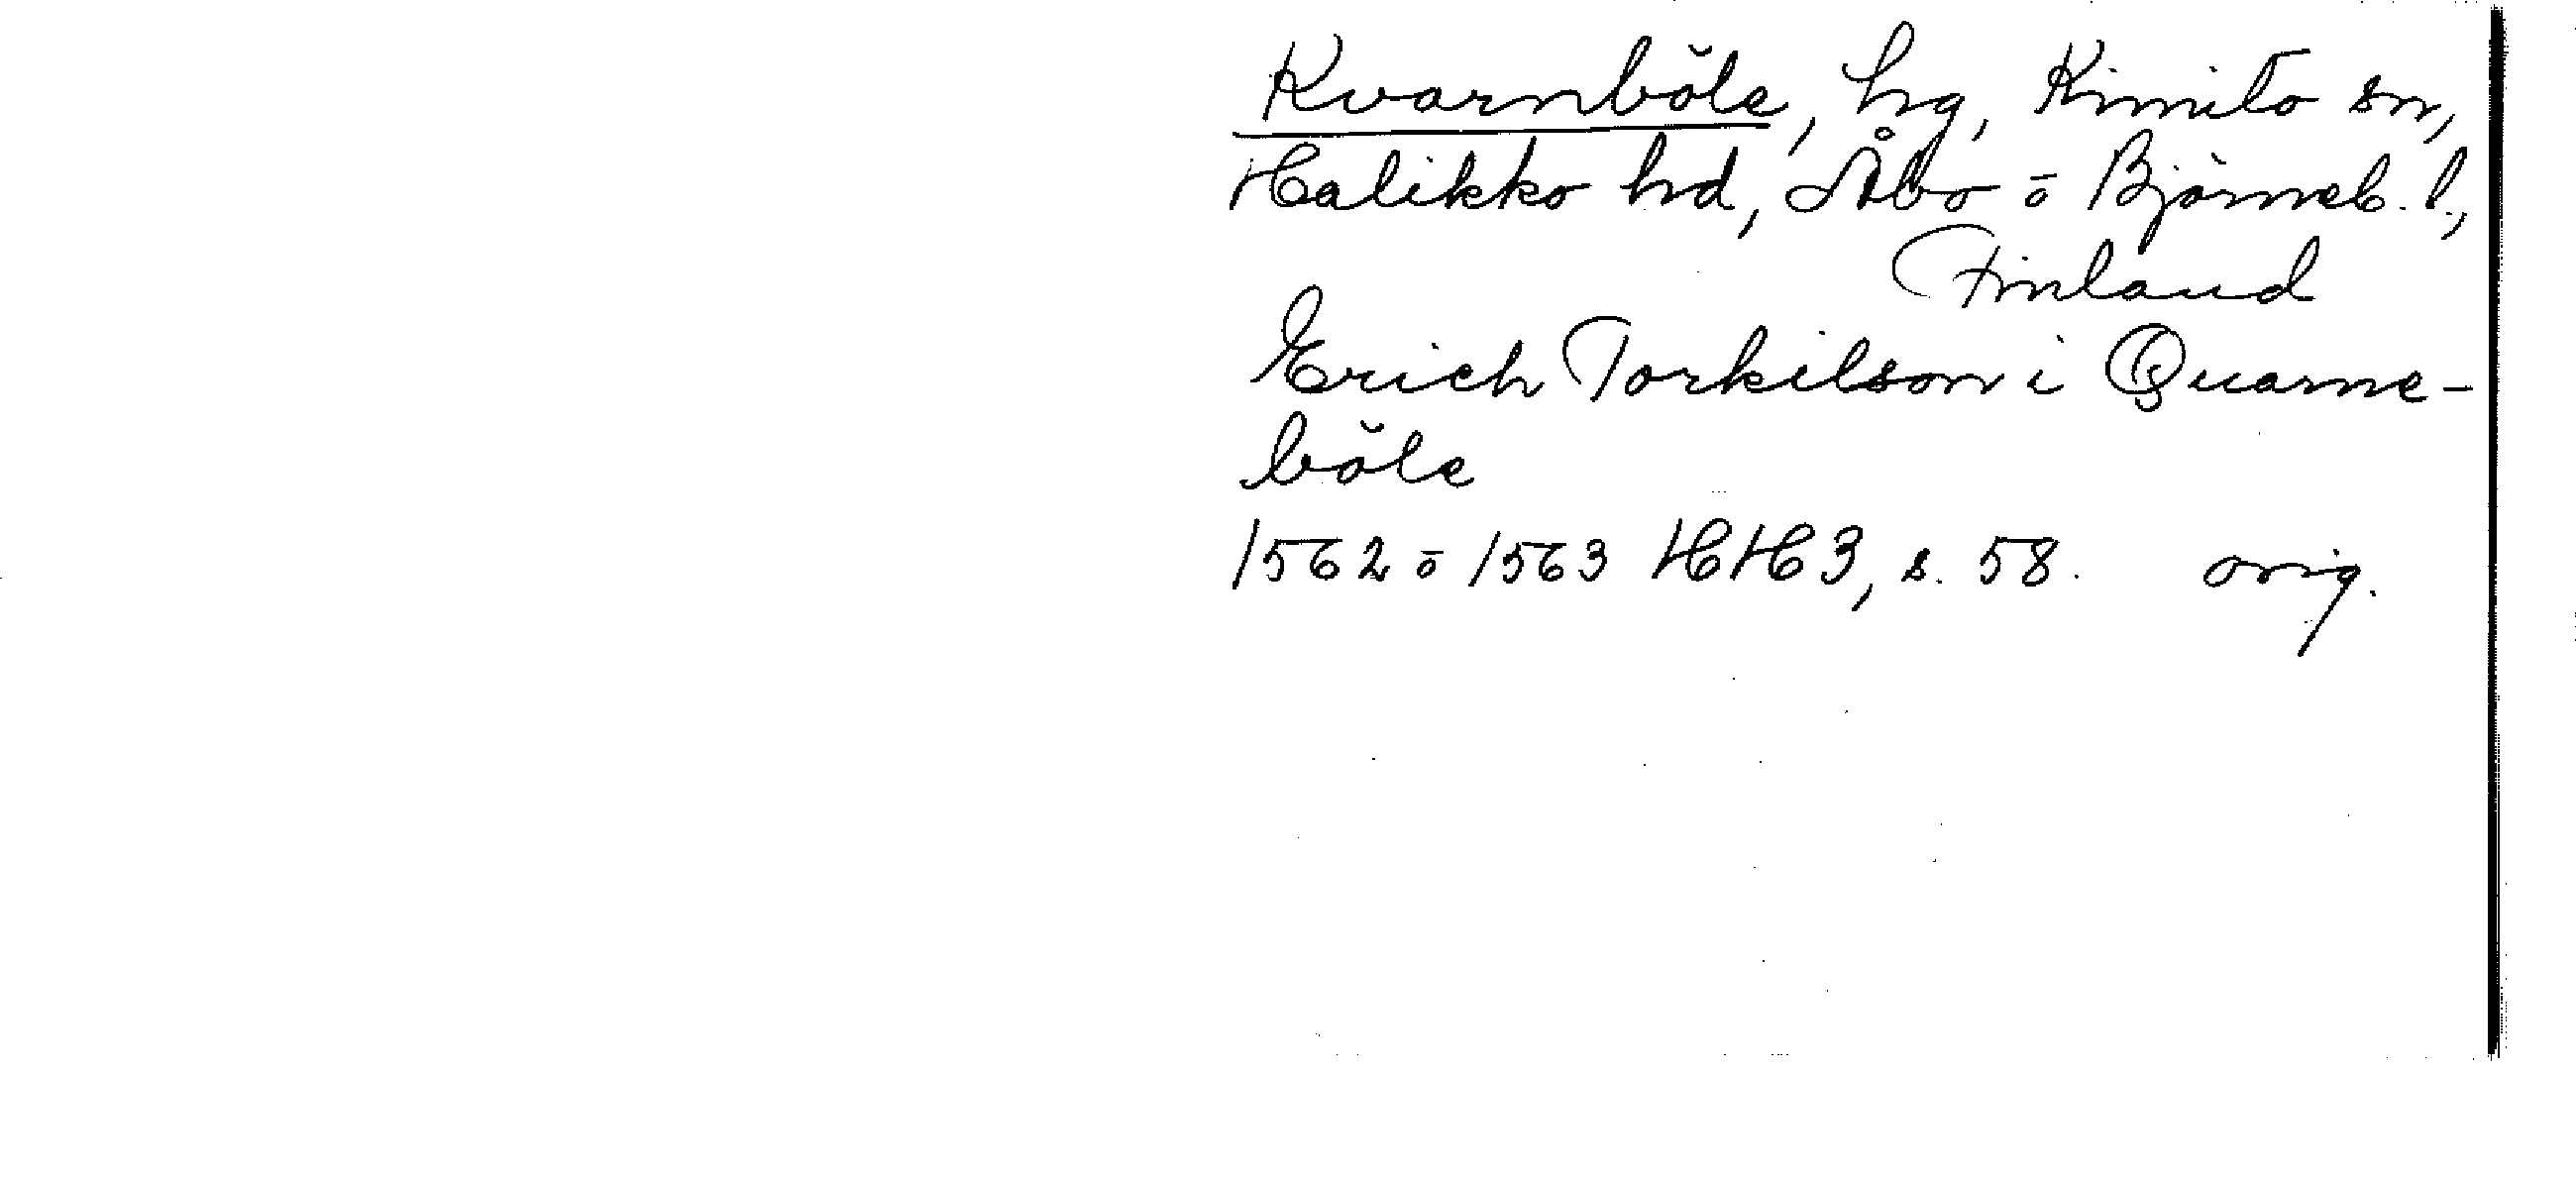 Kvarnböle, hg, Kimito sn,
Halikko hd, Åbo ö Björneb. l.,
Finland
Erich Torkilson i Quarne-
böle
1562 ö 1563 HH 3, s. 58. orig.